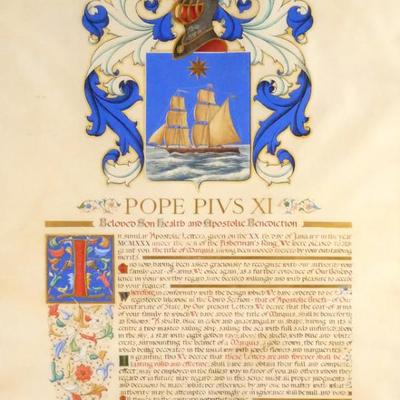 POPE PIVS XI
Beloved Son Health and Apostolic Benediction
In similar Apostolic Letters, given on the XX day of January in the year
MCMXXX under the seal of the Fisherman's Ring, We were pleased to
grant you the title of Marquis, having been moved thereto by your outstanding
merits.
And now having been asked graciously to recognize with our authority
family coat-of-arms, We once again, as a further evidence of Our
ence in your worthy regard, have decided willingly and with pleasure to accede
to your request.
Wherefore, in conformity with the design which We have ordered to be
registered likewise in the Third Section – that of Apostolic Briefs – of Our
Secretariate of State, by Our present Letters We decree that the coat-of-arms
of your family to which We have added the title of Marquis, shall be
as follows: A shield, blue in color and quadrangular in shape, having in its
centre a two masted sailing ship, sailing the sea with full sails
in the sky, a star with eight golden rays; above the shield, with blue and white
crests, surmounting the helmet of a Marquis, a gold crown, the five
which being decorated in the usual way with jewels and
In granting this We decree that these Letters are and forever shall be
lasting valid and effective; shall have and obtain their full and complete
effect; may be employed in the fullest way in favor of you and others whom they
regard or in future may regard; and in this sense must all proper judgments
and decisions be made; whatever otherwise by any one no matter with what
authority may be attempted knowingly or in ignorance shall be null and void